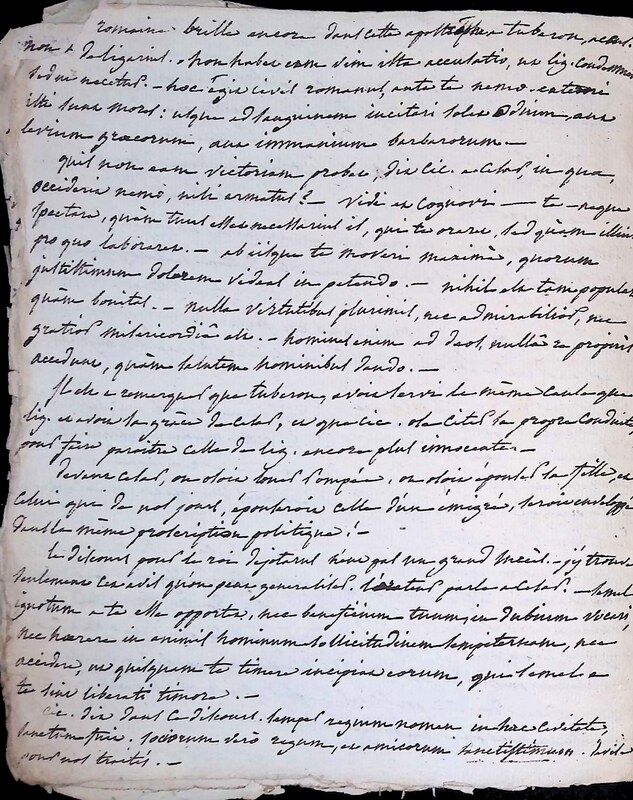 romaine brille encore dans cette apostrophe a tuberon, accus
non a de ligarius. - non habet eam vim ista accusatio, ut lig. condemne
sed ut necetur. - hoc egit civis romanus, ante te nemo. externi
isti sunt mores: usque ad sanguinem incitari solet odium, aut
levium græcorum, aut immanium barbarorum -
quis non eam victoriam probet, dit cic. a cesar, in qua,
occiderit nemo, nisi armatus? - vidi et cognovi - te - neque
spectare, quam tuus esset necessarius is, qui te oraret, sed quàm illius
pro quo laboraret. - ab iisque te moveri maximè, quorum
justissimum dolorem videas in petendo. - nihil est tam populare
quàm bonitas. - nulla virtutibus plurimis, nec admirabilior, nec
gratior misericordiâ est. - homines enim ad deos, nullâ re propiùs
accedunt, quàm salutem hominibus dando. -
Il est a remarquer que tuberon, avoit servi la même cause que
lig. et avoit sa grâce de cesar, et que cic. ose citer sa propre conduite,
pour faire paroitre celle de lig. encore plus innocente. -
devant cesar, on osoit louer pompée. on osoit épouser sa fille, et
celui qui de nos jours, épouseroit celle d'un émigré, seroit enveloppé
dans la même proscription politique! -
le discours pour le roi dejotarus n'eut pas un grand succès. - j'y trouve
seulement cet avis qu'on peut generaliser. parle a cesar. - semel
ignotum a te esse oportet, nec beneficium tuum in dubium vocari,
nec hærere in animis hominum sollicitudinem sempiternam, nec
accidere, ut quisquam te timere incipiat eorum, qui semel a
te sint liberati timore. -
cic. dit dans ce discours. semper regium nomen in hac civitate,
sanctum fuit. sociorum verò regum, et amicorum sanctissimum.
pour nos traités. -